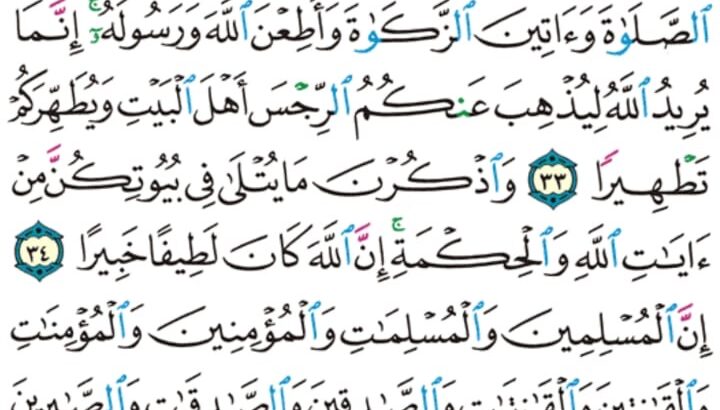 ٱلصَّلَوٰةَ وَءَاتِينَ ٱلزَّكَوٰةَ وَأَطِعْنَ ٱللَّهَ وَرَسُولَهُۥٓ ۚ إِنَّمَا
يُرِيدُ ٱللَّهُ لِيُذْهِبَ عَنكُمُ ٱلرِّجْسَ أَهْلَ ٱلْبَيْتِ وَيُطَهِّرَكُمْ
تَطْهِيرًا ٣٣ وَٱذْكُرْنَ مَا يُتْلَىٰ فِى بُيُوتِكُنَّ مِنْ
ءَايَٰتِ ٱللَّهِ وَٱلْحِكْمَةِ ۚ إِنَّ ٱللَّهَ كَانَ لَطِيفًا خَبِيرًا ٣٤
إِنَّ ٱلْمُسْلِمِينَ وَٱلْمُسْلِمَٰتِ وَٱلْمُؤْمِنِينَ وَٱلْمُؤْمِنَٰتِ
وَٱلْقَٰنِتِينَ وَٱلْقَٰنِتَٰتِ وَٱلصَّٰدِقِينَ وَٱلصَّٰدِقَٰتِ وَٱلصَّٰبِرِينَ